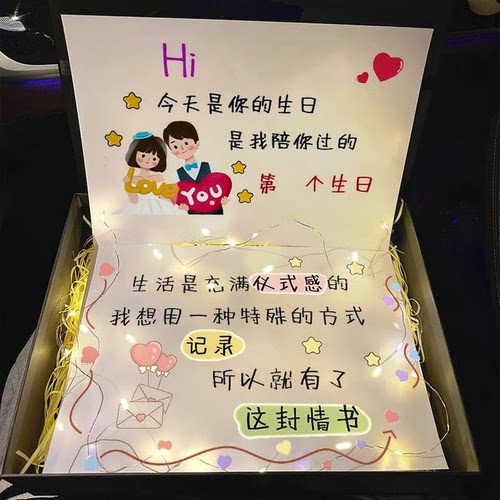 Hi
今天是你的生日
是我陪你过的
第 个生日
Love
YOU
生活是充满仪式感的
我想用一种特殊的方式
记录
所以就有了
这封情书